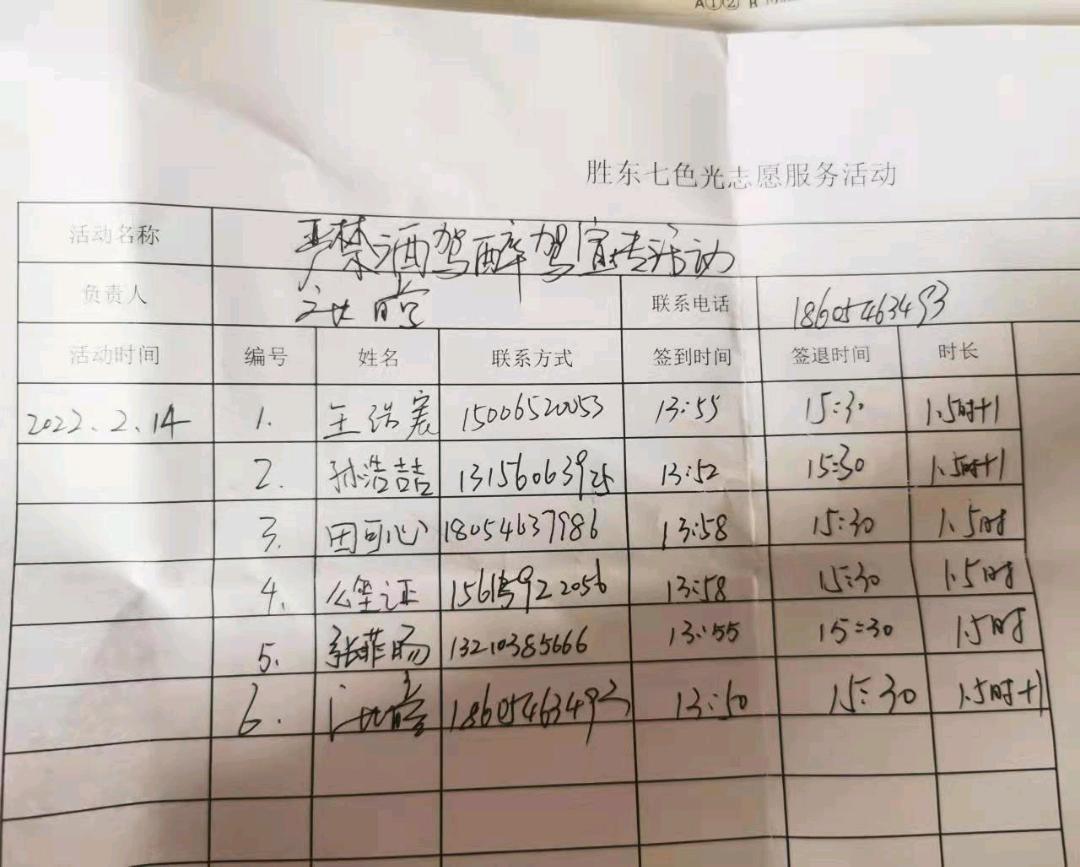 A①② H
胜东七色光志愿服务活动
活动名称 严禁酒驾醉驾宣传活动
负责人 联系电话 18605463493
活动时间 编号 姓名 联系方式 签到时间 签退时间 时长
2022.2.14 1. 王浩宸 15006520053 13:55 15:30 1.5时+1
2. 孙浩喆 13156063925 13:52 15:30 1.5时+1
3. 田可心 18054637986 13:58 15:30 1.5时
4. 13:58 15:30 1.5时
5. 张菲旸 13210385666 13:55 15:30 1.5时
6. 18605463493 13:50 15:30 1.5时+1